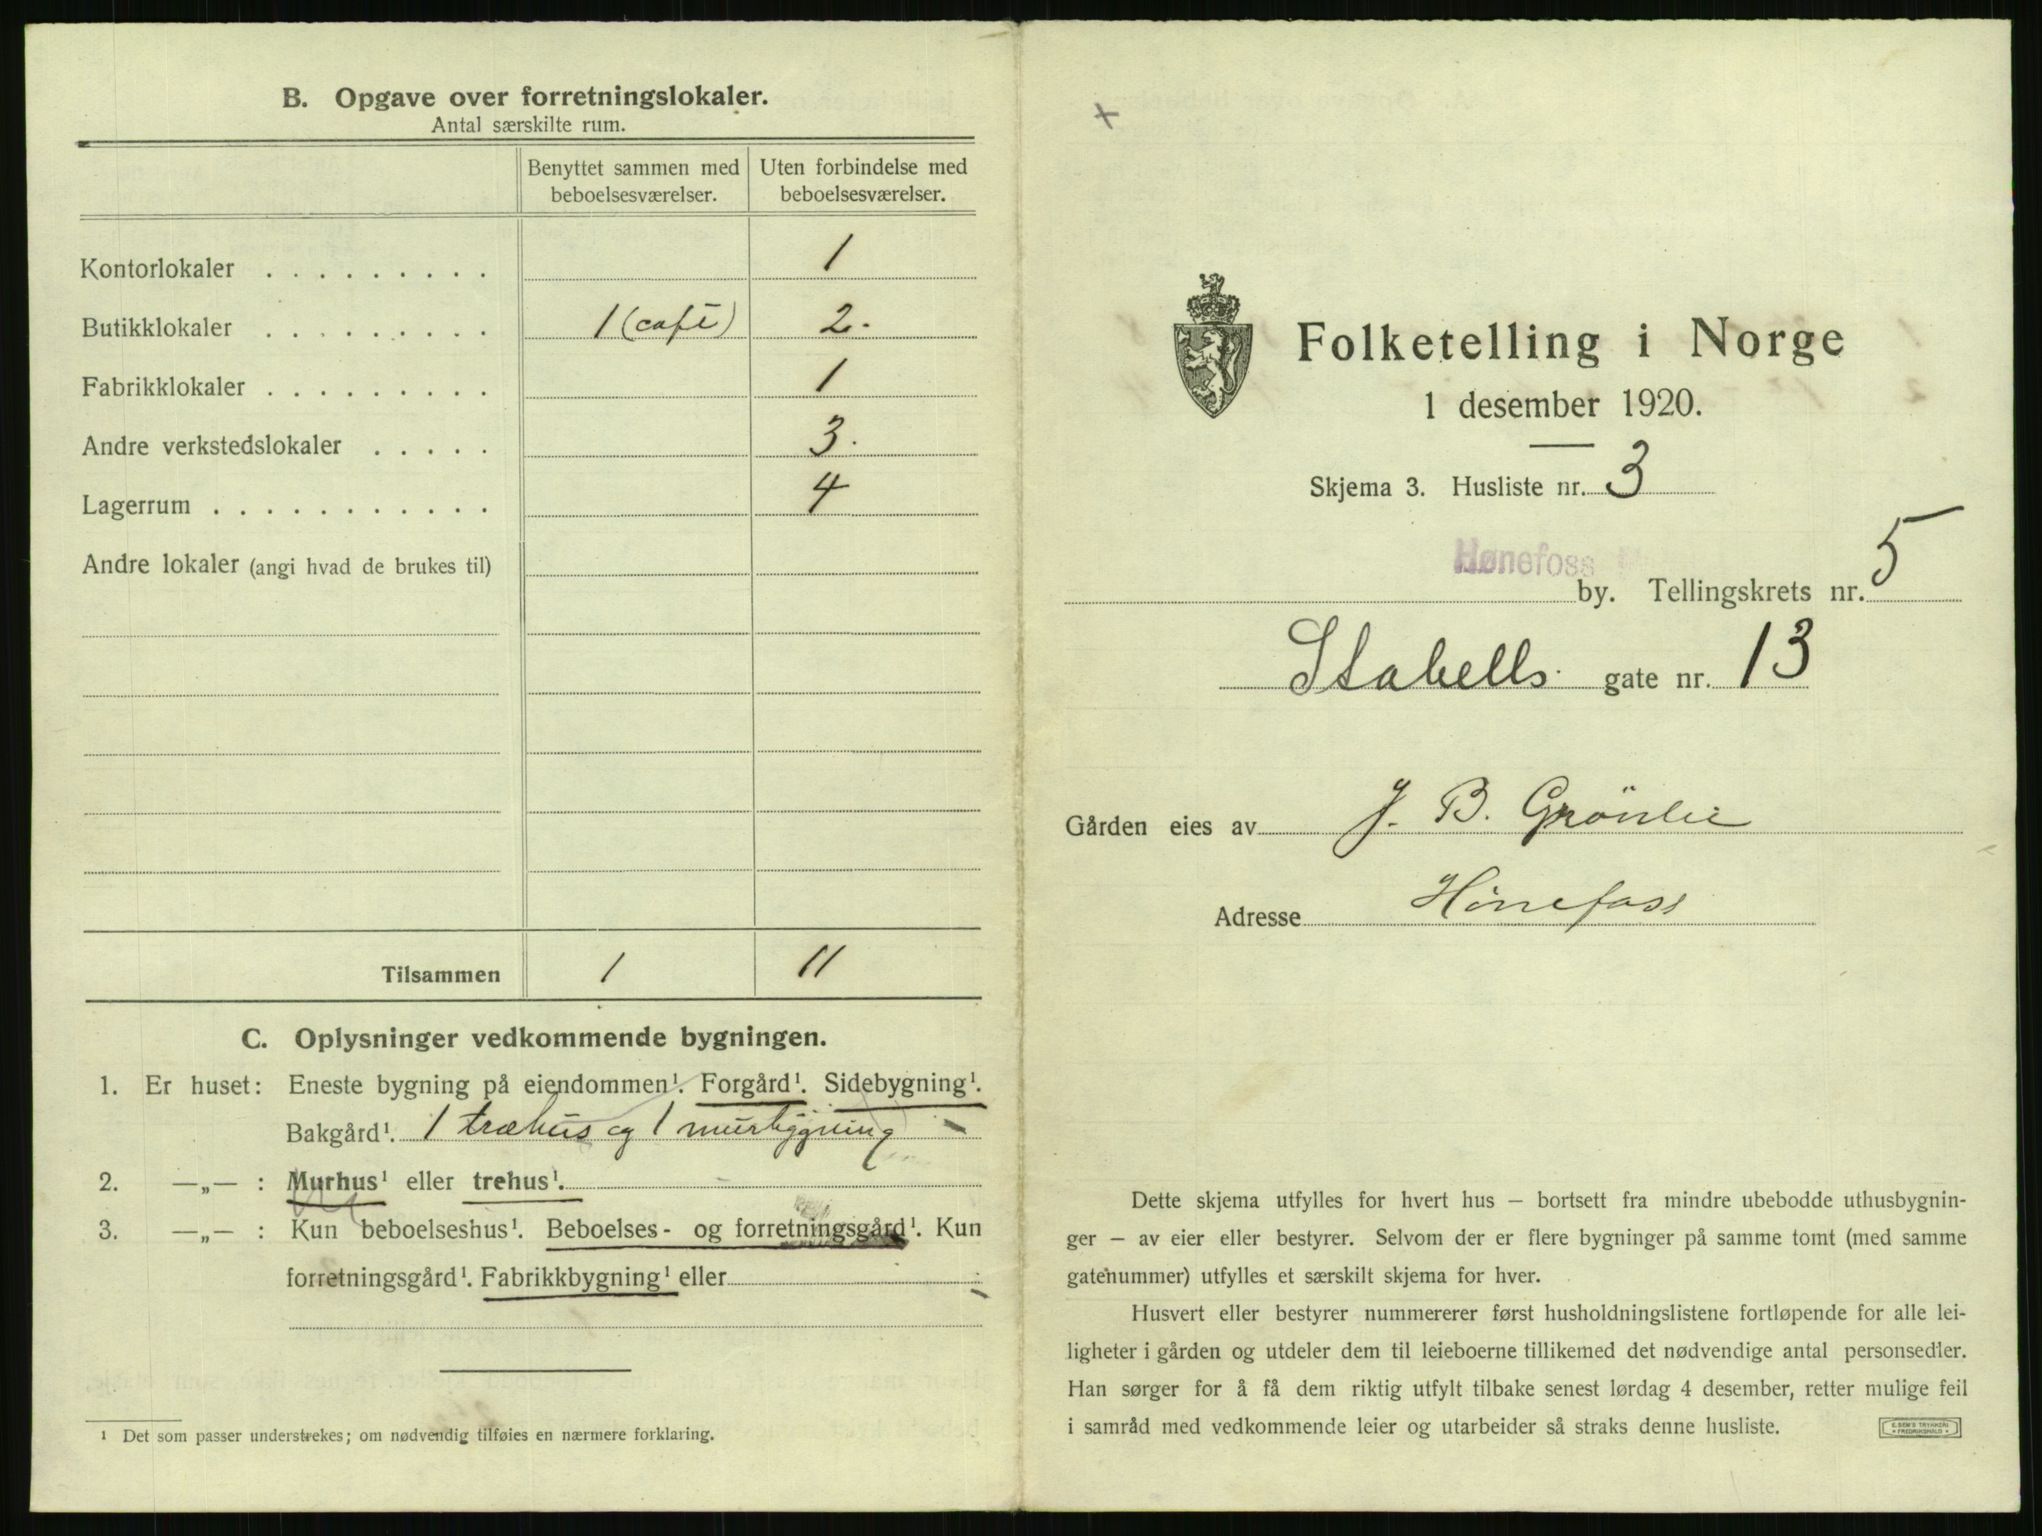 B. Opgave over forretningslokaler.
Antal særskilte rum.
Benyttet sammen med beboelsesværelser.
Uten forbindelse med beboelsesværelser.
Kontorlokaler . . . . . . . . . 1
Butikklokaler . . . . . . . . . 1 (café) 2.
Fabrikklokaler . . . . . . . . . 1
Andre verkstedslokaler . . . . . 3.
Lagerrum . . . . . . . . . . . 4
Andre lokaler (angi hvad de brukes til)
Tilsammen 1 11
C. Oplysninger vedkommende bygningen.
1. Er huset: Eneste bygning på eiendommen¹. Forgård¹. Sidebygning¹.
Bakgård¹. 1 træhus og 1 murbyggning
2. —„— : Murhus¹ eller trehus¹.
3. —„— : Kun beboelseshus¹. Beboelses- og forretningsgård¹. Kun
forretningsgård¹. Fabrikkbygning¹ eller
¹ Det som passer understrekes; om nødvendig tilføies en nærmere forklaring.
+
Folketelling i Norge
1 desember 1920.
Skjema 3. Husliste nr. 3
Hønefoss
by. Tellingskrets nr. 5
Stabells gate nr. 13
Gården eies av J. B. Grönlie
Adresse Hönefoss
Dette skjema utfylles for hvert hus – bortsett fra mindre ubebodde uthusbygnin-
ger – av eier eller bestyrer. Selvom der er flere bygninger på samme tomt (med samme
gatenummer) utfylles et særskilt skjema for hver.
Husvert eller bestyrer nummererer først husholdningslistene fortløpende for alle lei-
ligheter i gården og utdeler dem til leieboerne tillikemed det nødvendige antal personsedler.
Han sørger for å få dem riktig utfylt tilbake senest lørdag 4 desember, retter mulige feil
i samråd med vedkommende leier og utarbeider så straks denne husliste.
E. SEM'S TRYKKERI
• FREDRIKSHALD •